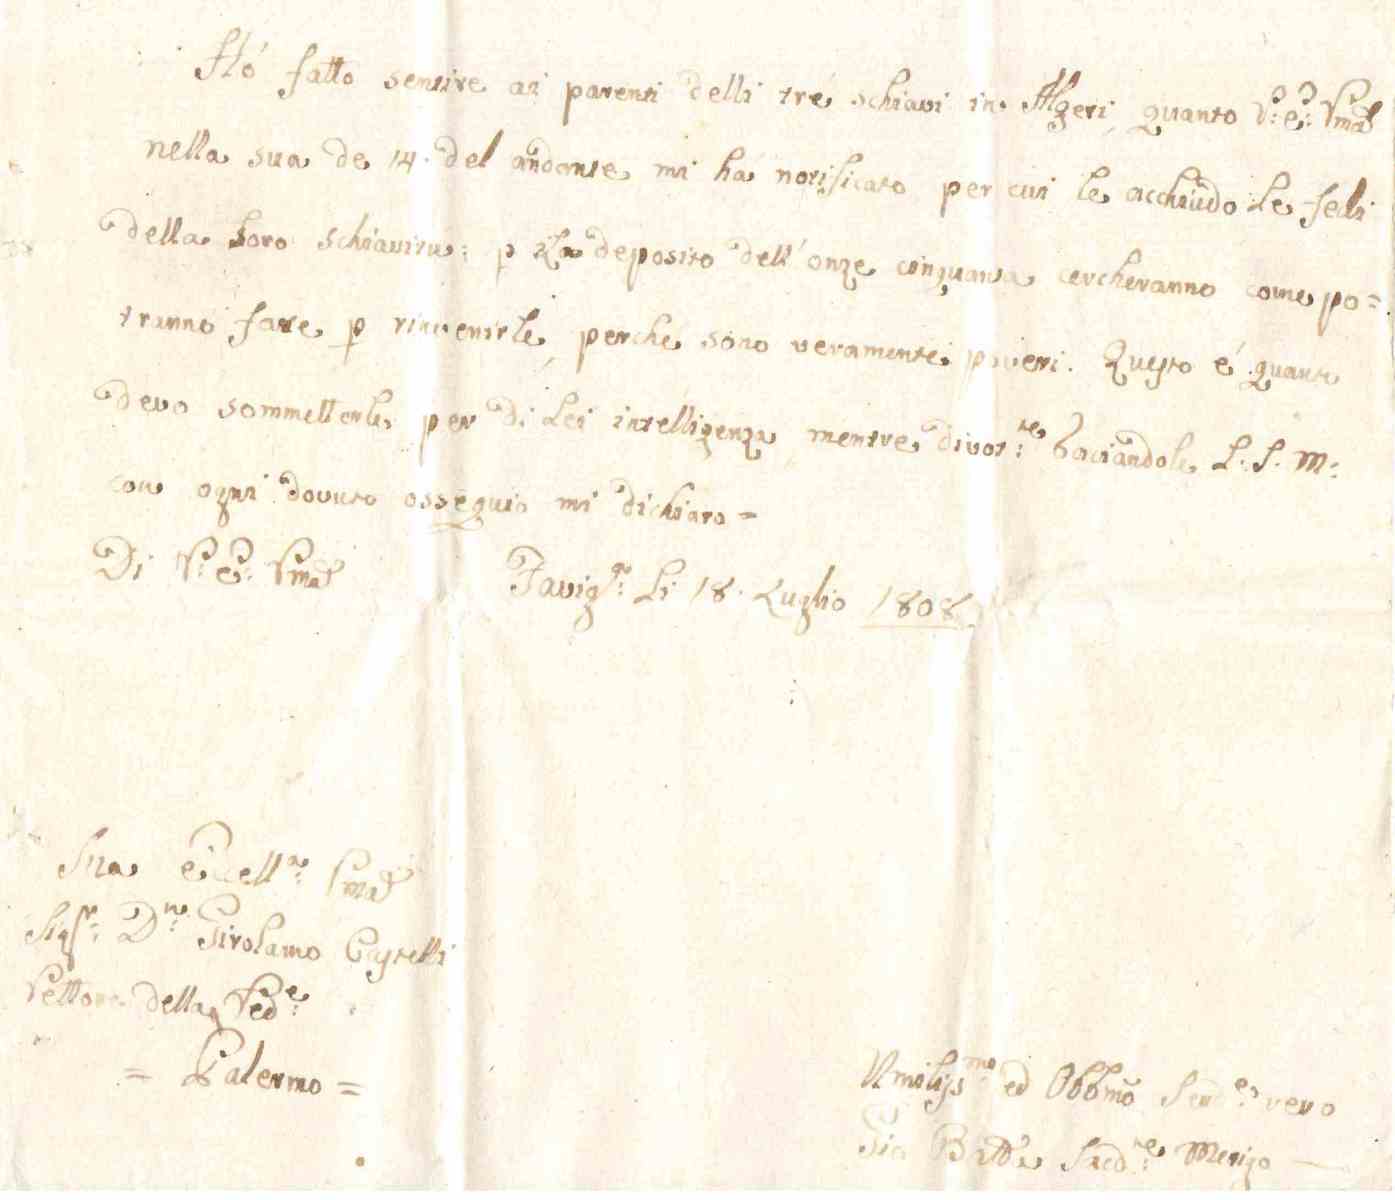 Hó fatto sentire ai parenti delli tré schiavi in Algeri, quanto V: E: Rma
nella sua de 14. del andante mi há notificato, per cui le acchiudo le fedi
della loro schiavitu: p la deposito dell'onze cinquanta cercheranno come po=
tranno fare p rinvenirle, perché sono veramente poveri. Questo é quanto
devo sommetterle per di Lei intelligenza, mentre divot:te baciandole L. S. M:
con ogni dovuto ossequio mi dichiaro =
Di V: E: Rma
Favig:a Li 18. Luglio 1808
Sua Eccell:a Rma
Sig:r D:n Girolamo Castelli
Rettore della Red:e
= Palermo =
Umiliss:mo ed Obbmo Serd:e vero
Gio Btta Sacd:te Merigo